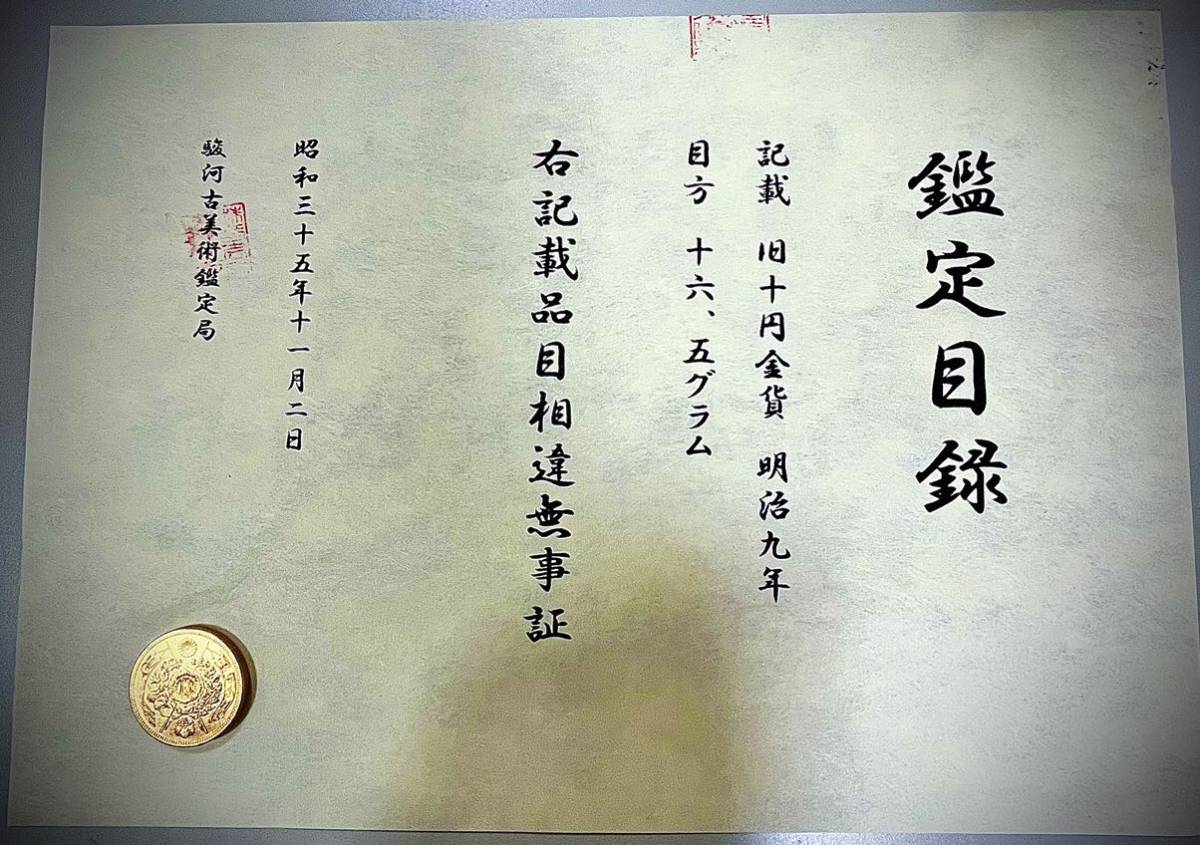 鑑定目録
記載 旧十円金貨 明治九年
目方 十六、五グラム
右記載品目相違無事証
昭和三十五年十一月二日
駿河古美術鑑定局